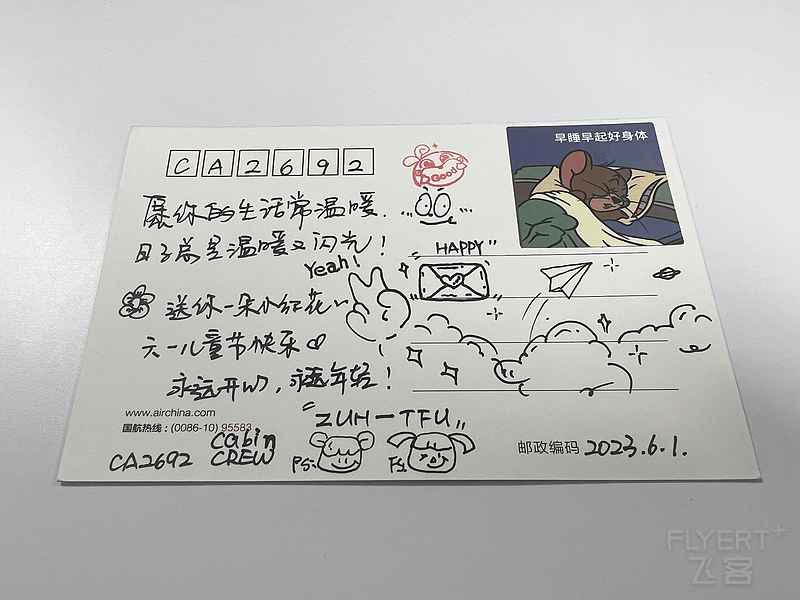 CA2692
Good
早睡早起好身体
愿你的生活常温暖.
日子总是温暖又闪光！
"HAPPY"
Yeah!
送你一朵小红花～
六一儿童节快乐
永远开心，永远年轻！
www.airchina.com
国航热线：(0086-10) 95583
"ZUH-TFU"
CA2692
Cabin
CREW
PS:
FS:
邮政编码 2023.6.1.
FLYERT+
飞客